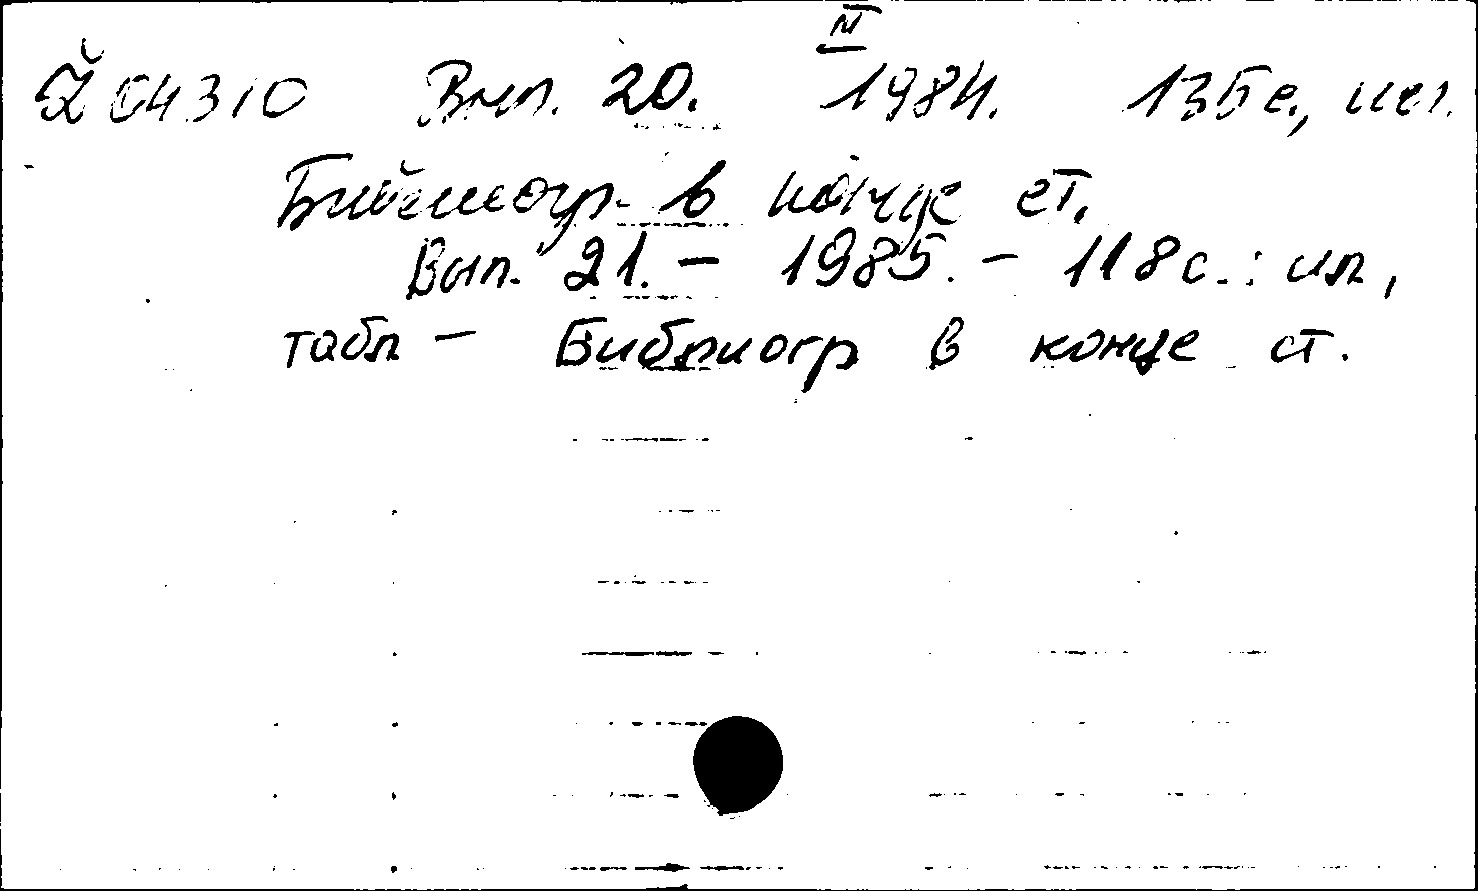 Ž 04310 Вып. 20. 1984. 135 с., ил.
Библиогр. в конце ст.
Вып. 21. – 1985. – 118 с. : ил,
табл – Библиогр в конце ст.